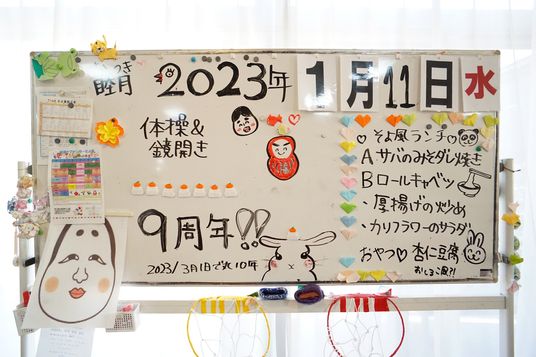 睦月
むつき
2023年
1月11日水
体操&
鏡開き
9周年!!
2023/3月1日で丸10年
そよ風ランチ
Aサバのみそダレ焼き
Bロールキャベツ
・厚揚げの炒め
・カリフラワーのサラダ
おやつ♡杏仁豆腐
おしるこ風?!